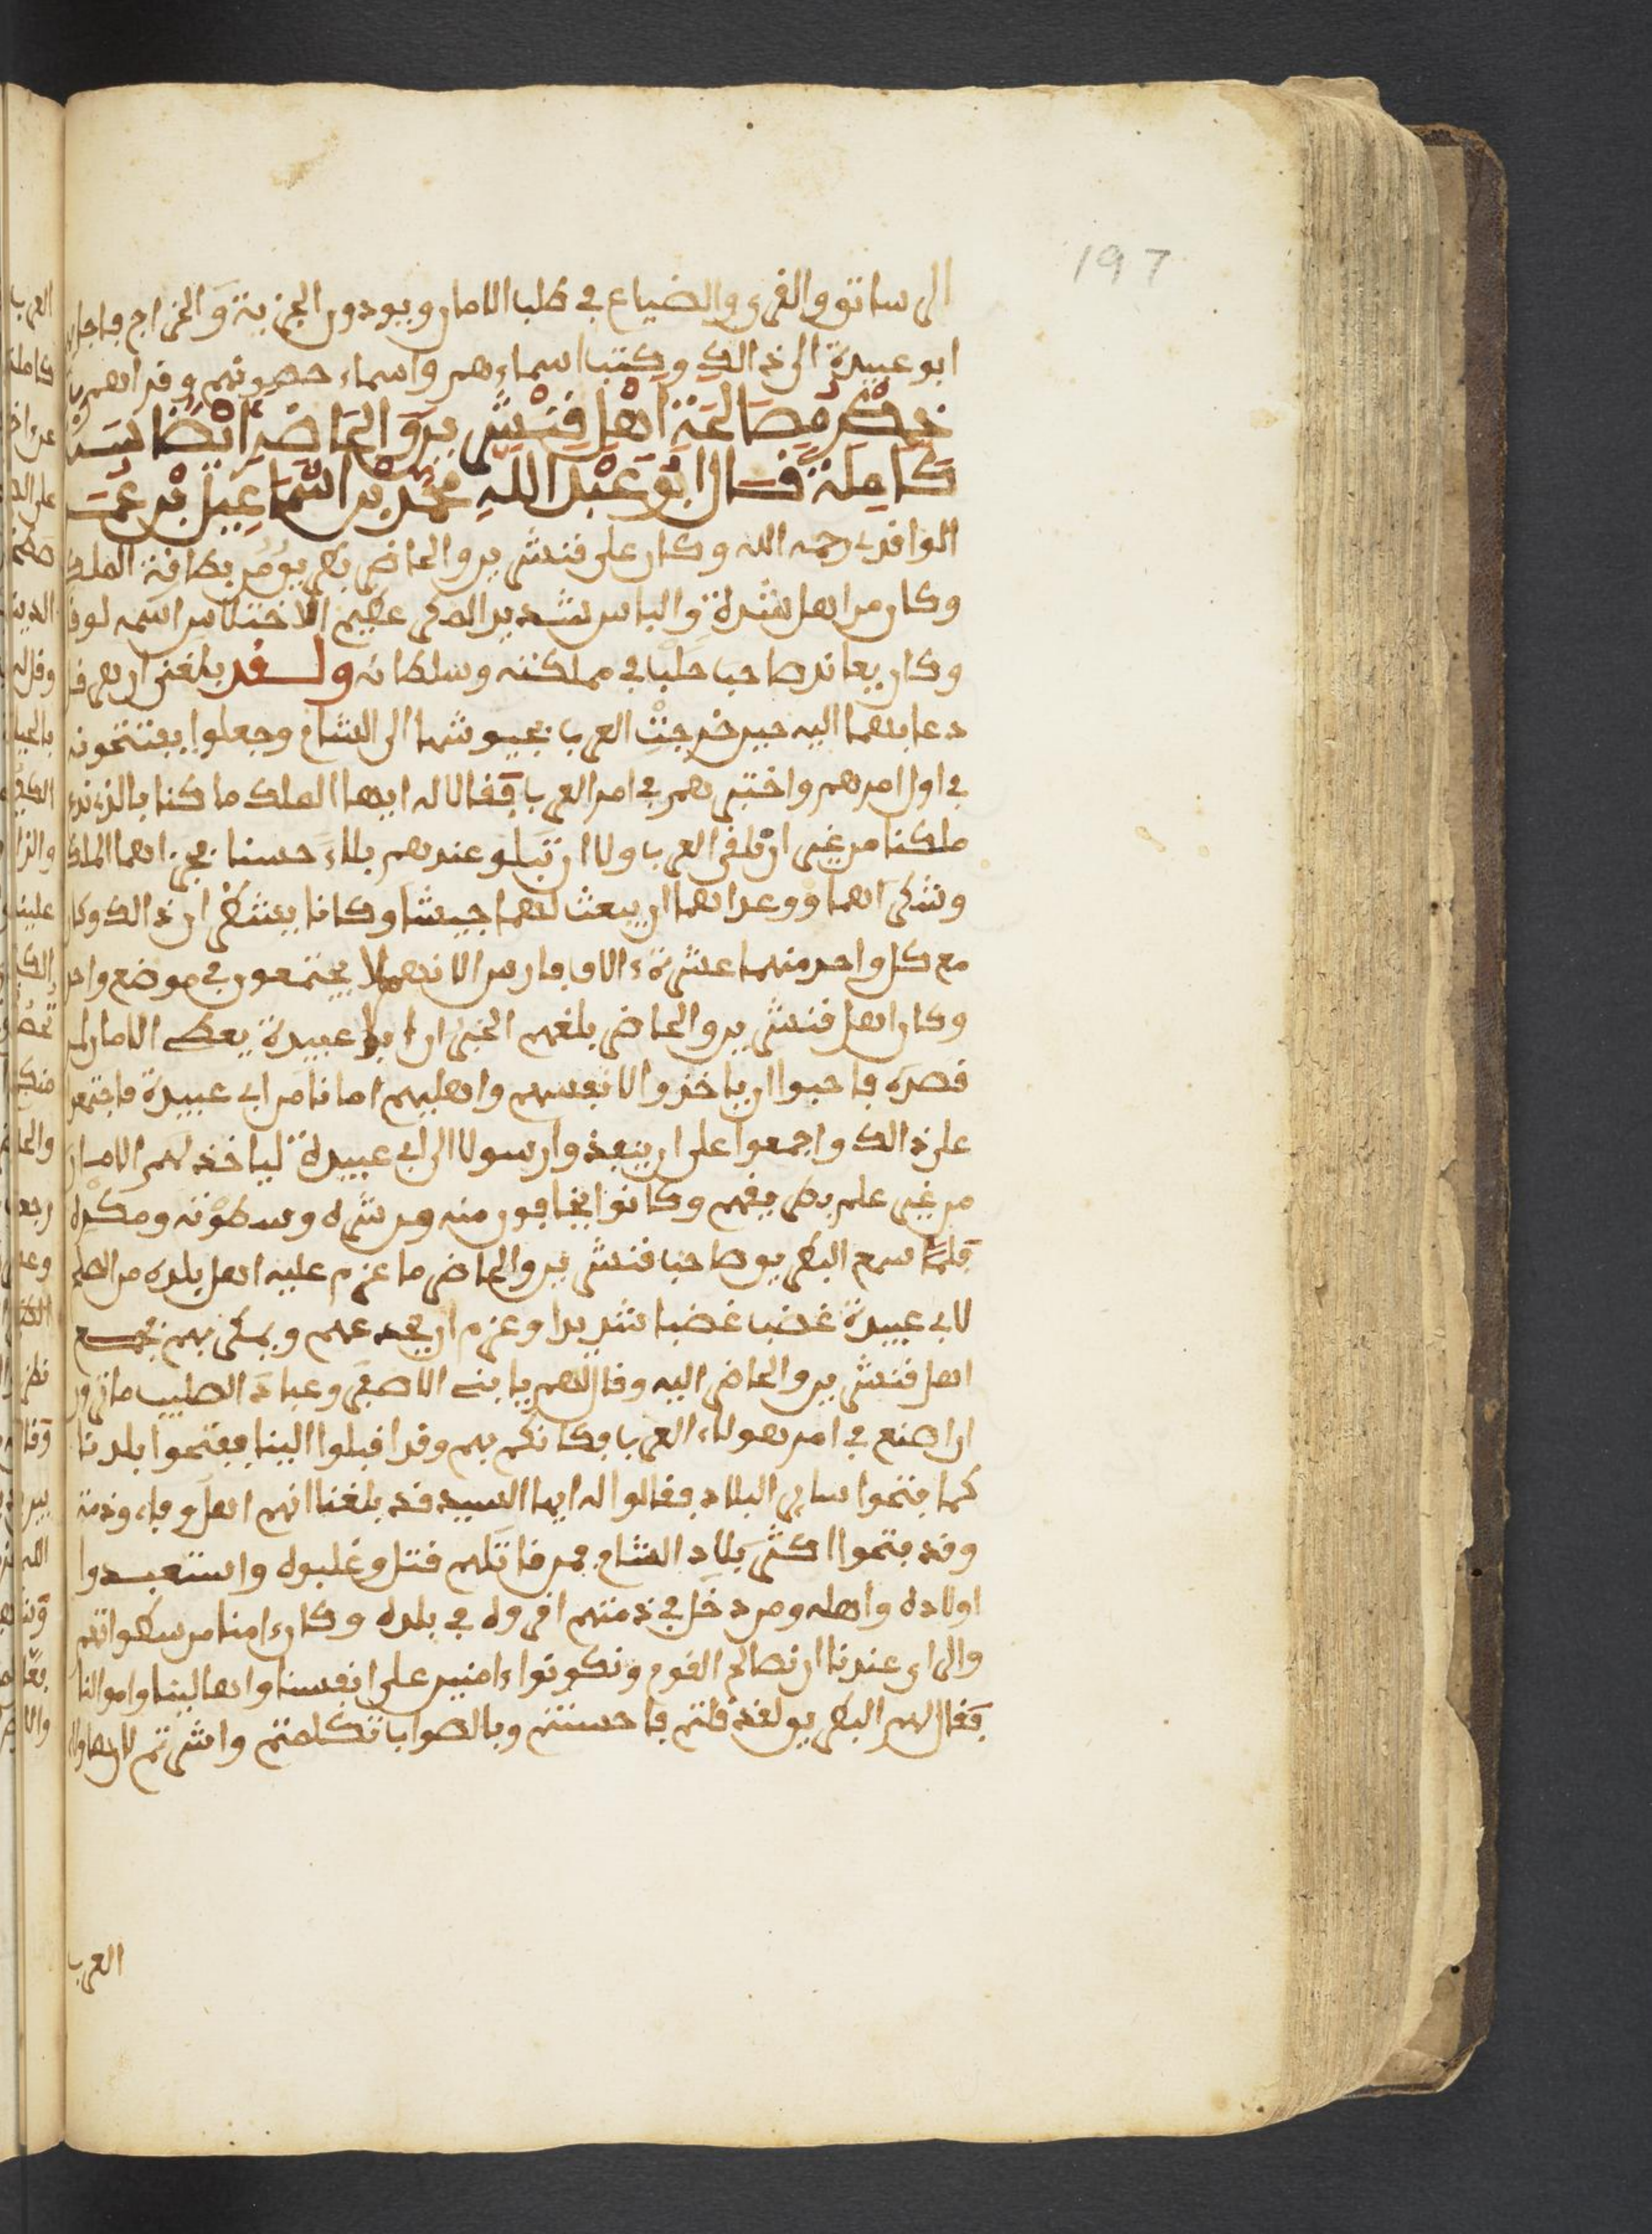 197
الرساتق والقرى والضياع في طلب الامان ويودون الجزية والخراج فاجابهم
ابو عبيدة الى ذالك وكتب اسماءهم واسماء حصونهم
ذكر مصالحة اهل قنشرين والحاضر ايضا سنة
كاملة قال ابو عبد الله محمد بن اسماعيل بن عمر
الواقدي رحمه الله وكان على قنشرين والحاضر بطريق من بطارقة الملك
وكان من اهل الشدة والباس شديد المكر عظيم الاختلاس اسمه لوقا
وكان يعاند صاحب حلب في مملكته وسلطانه ولقد بلغني ان هرقل
دعا بهما اليه حين خرجت العرب بجيوشها الى الشام وجعلوا يفتتحونه
في اول امرهم واختبرهم في امر العرب فقالا له ايها الملك ما كنا بالذي ندع
ملكنا من غير ان نلقى العرب ولا ان نبلو عندهم بلاء حسنا فجزاهما الملك
وشكر لهما ووعد لهما ان يبعث لهما جيشا وكانا ينتظران ذالك وكان
مع كل واحد منهما عشرة ءالاف فارس الا انهم لا يجتمعون في موضع واحد
وكان اهل قنشرين والحاضر بلغهم الخبر ان ابا عبيدة يعطي الامان لمن
قصده فاحبوا ان ياخذوا لانفسهم واهليهم امانا من ابي عبيدة فاجتمعوا
على ذالك واجمعوا على ان ينفذوا رسولا الى ابي عبيدة لياخذ لهم الامان
من غير علم بطريقهم وكانوا يخافون منه ومن شره وسطوته ومكره
فلما سمع البطريق صاحب قنشرين والحاضر ما عزم عليه اهل بلده من الصلح
لابي عبيدة غضب غضبا شديدا وعزم ان يخدعهم ويمكر بهم فجمع
اهل قنشرين والحاضر اليه وقال لهم يا بني الاصفر وعباد الصليب ما ترون
ان اصنع في امر هولاء العرب فكانكم بهم وقد اقبلوا الينا ففتحوا بلدنا
كما فتحوا ساير البلاد فقالوا له ايها السيد قد بلغنا انهم اهل وفاء وذمة
وقد فتحوا اكثر بلاد الشام فمن قاتلهم قتل وغلبوه واستعبدوا
اولاده واهله ومن دخل في ذمتهم اقروه في بلده وكان ءامنا من سطواتهم
والراي عندنا ان نصالح القوم ونكونوا ءامنين على انفسنا واهالينا واموالنا
فقال لهم البطريق لقد قلتم فاحسنتم وبالصواب تكلمتم واشرتم لان هاولاء
العرب